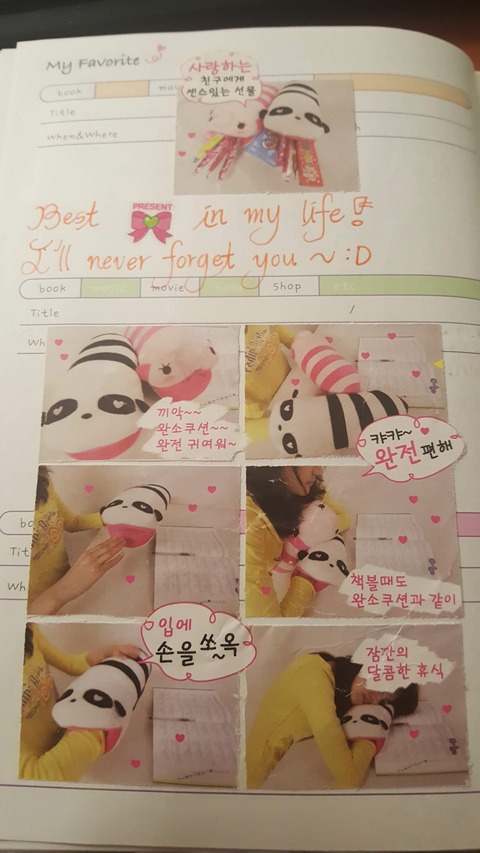 My Favorite
사랑하는
친구에게
센스있는 선물
book
Title
When&Where
Best PRESENT in my life!
I'll never forget you ~ :D
book music movie food shop etc
Title /
끼악~~
완소쿠션~~
완전 귀여워~
캬캬~
완전 편해
책볼때도
완소쿠션과 같이
입에
손을 쏘~옥
잠깐의
달콤한 휴식